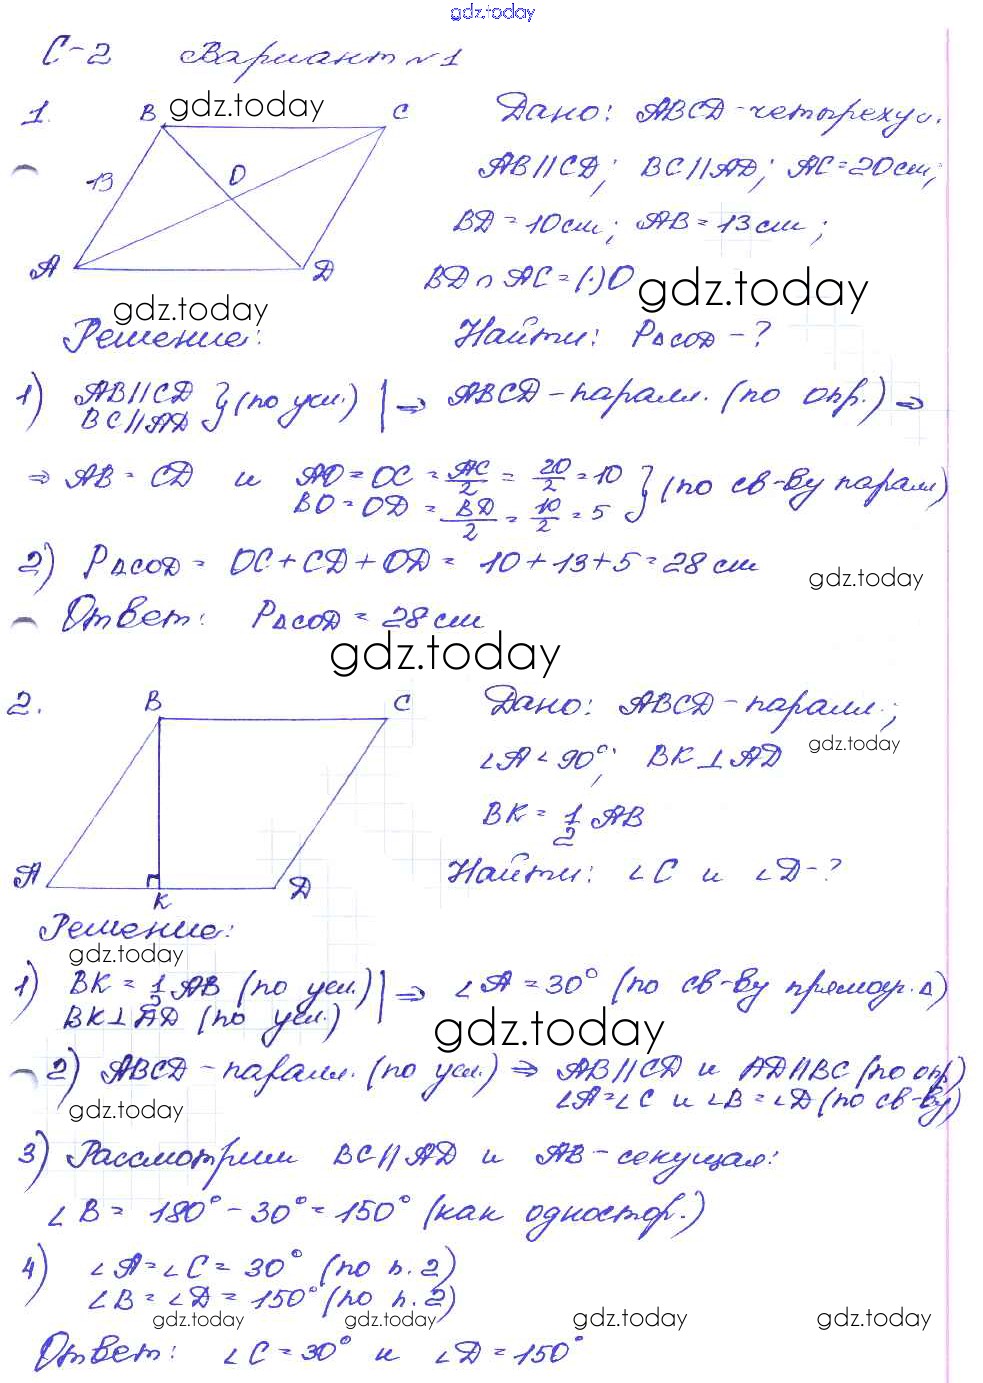 gdz.today
С-2 Вариант №1
1.
B gdz.today C
13
O
A D
Дано: ABCD-четырехуг.
AB||CD; BC||AD; AC=20см;
BD=10см; AB=13см;
BD∩AC=(·)O gdz.today
gdz.today
Решение: Найти: P△COD-?
1) AB||CD
BC||AD } (по усл.) | ⇒ ABCD-паралл. (по опр.) ⇒
⇒ AB = CD и AO=OC = AC/2 = 20/2 = 10
BO=OD = BD/2 = 10/2 = 5 } (по св-ву паралл)
2) P△COD = OC+CD+OD = 10+13+5=28 см
gdz.today
Ответ: P△COD = 28 см
gdz.today
2.
B C
A K D
Дано: ABCD-паралл.;
gdz.today
∠A<90°; BK⊥AD
BK = 1/2 AB
Найти: ∠C и ∠D-?
Решение:
gdz.today
1) BK = 1/2 AB (по усл.)
BK⊥AD (по усл.) | ⇒ ∠A=30° (по св-ву прямоуг.△)
gdz.today
2) ABCD-паралл. (по усл.) ⇒ AB||CD и AD||BC (по опр)
∠A=∠C и ∠B=∠D (по св-ву)
gdz.today
3) Рассмотрим BC||AD и AB-секущая:
∠B = 180°-30°=150° (как одностор.)
4) ∠A=∠C= 30° (по п.2)
∠B=∠D = 150° (по п.2)
gdz.today gdz.today gdz.today gdz.today
Ответ: ∠C=30° и ∠D=150°